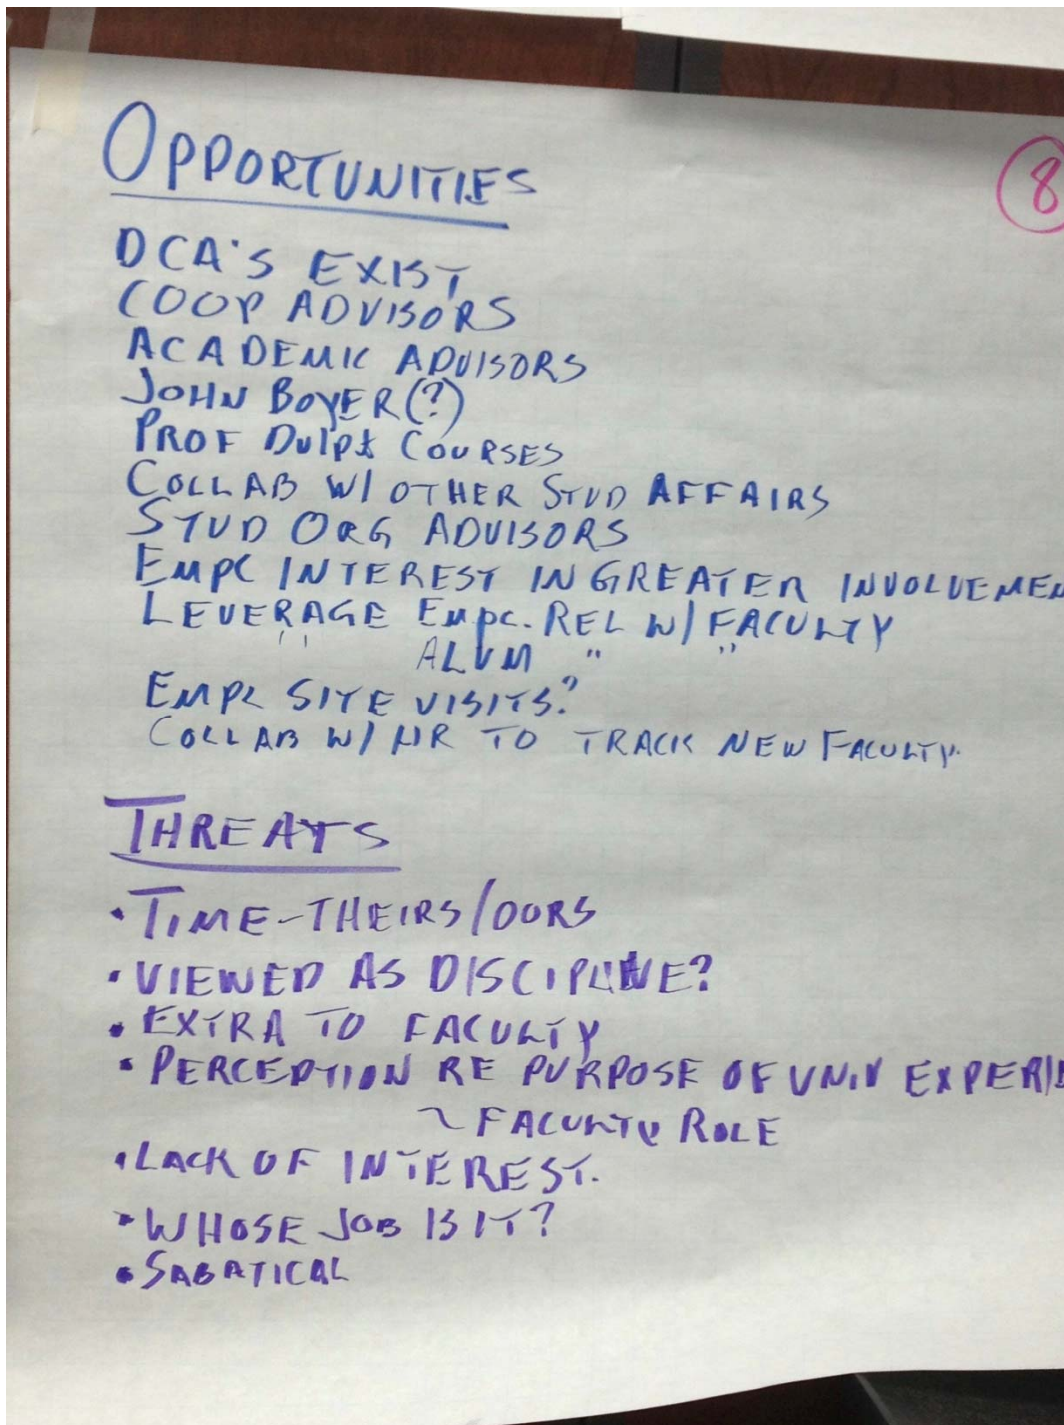 OPPORTUNITIES
8
DCA'S EXIST
COOP ADVISORS
ACADEMIC ADVISORS
JOHN BOYER(?)
PROF COURSES
COLLAB W/ OTHER STUD AFFAIRS
STUD ORG ADVISORS
EMPL INTEREST IN GREATER INVOLVEMEN
LEVERAGE EMPL. REL W/ FACULTY
" ALUM " "
EMPL SITE VISITS?
COLLAB W/ HR TO TRACK NEW FACULTY.
THREATS
• TIME-THEIRS/OURS
• VIEWED AS DISCIPLINE?
• EXTRA TO FACULTY
• PERCEPTION RE PURPOSE OF UNIV EXPERIE
~ FACULTY ROLE
• LACK OF INTEREST.
• WHOSE JOB IS IT?
• SABATICAL